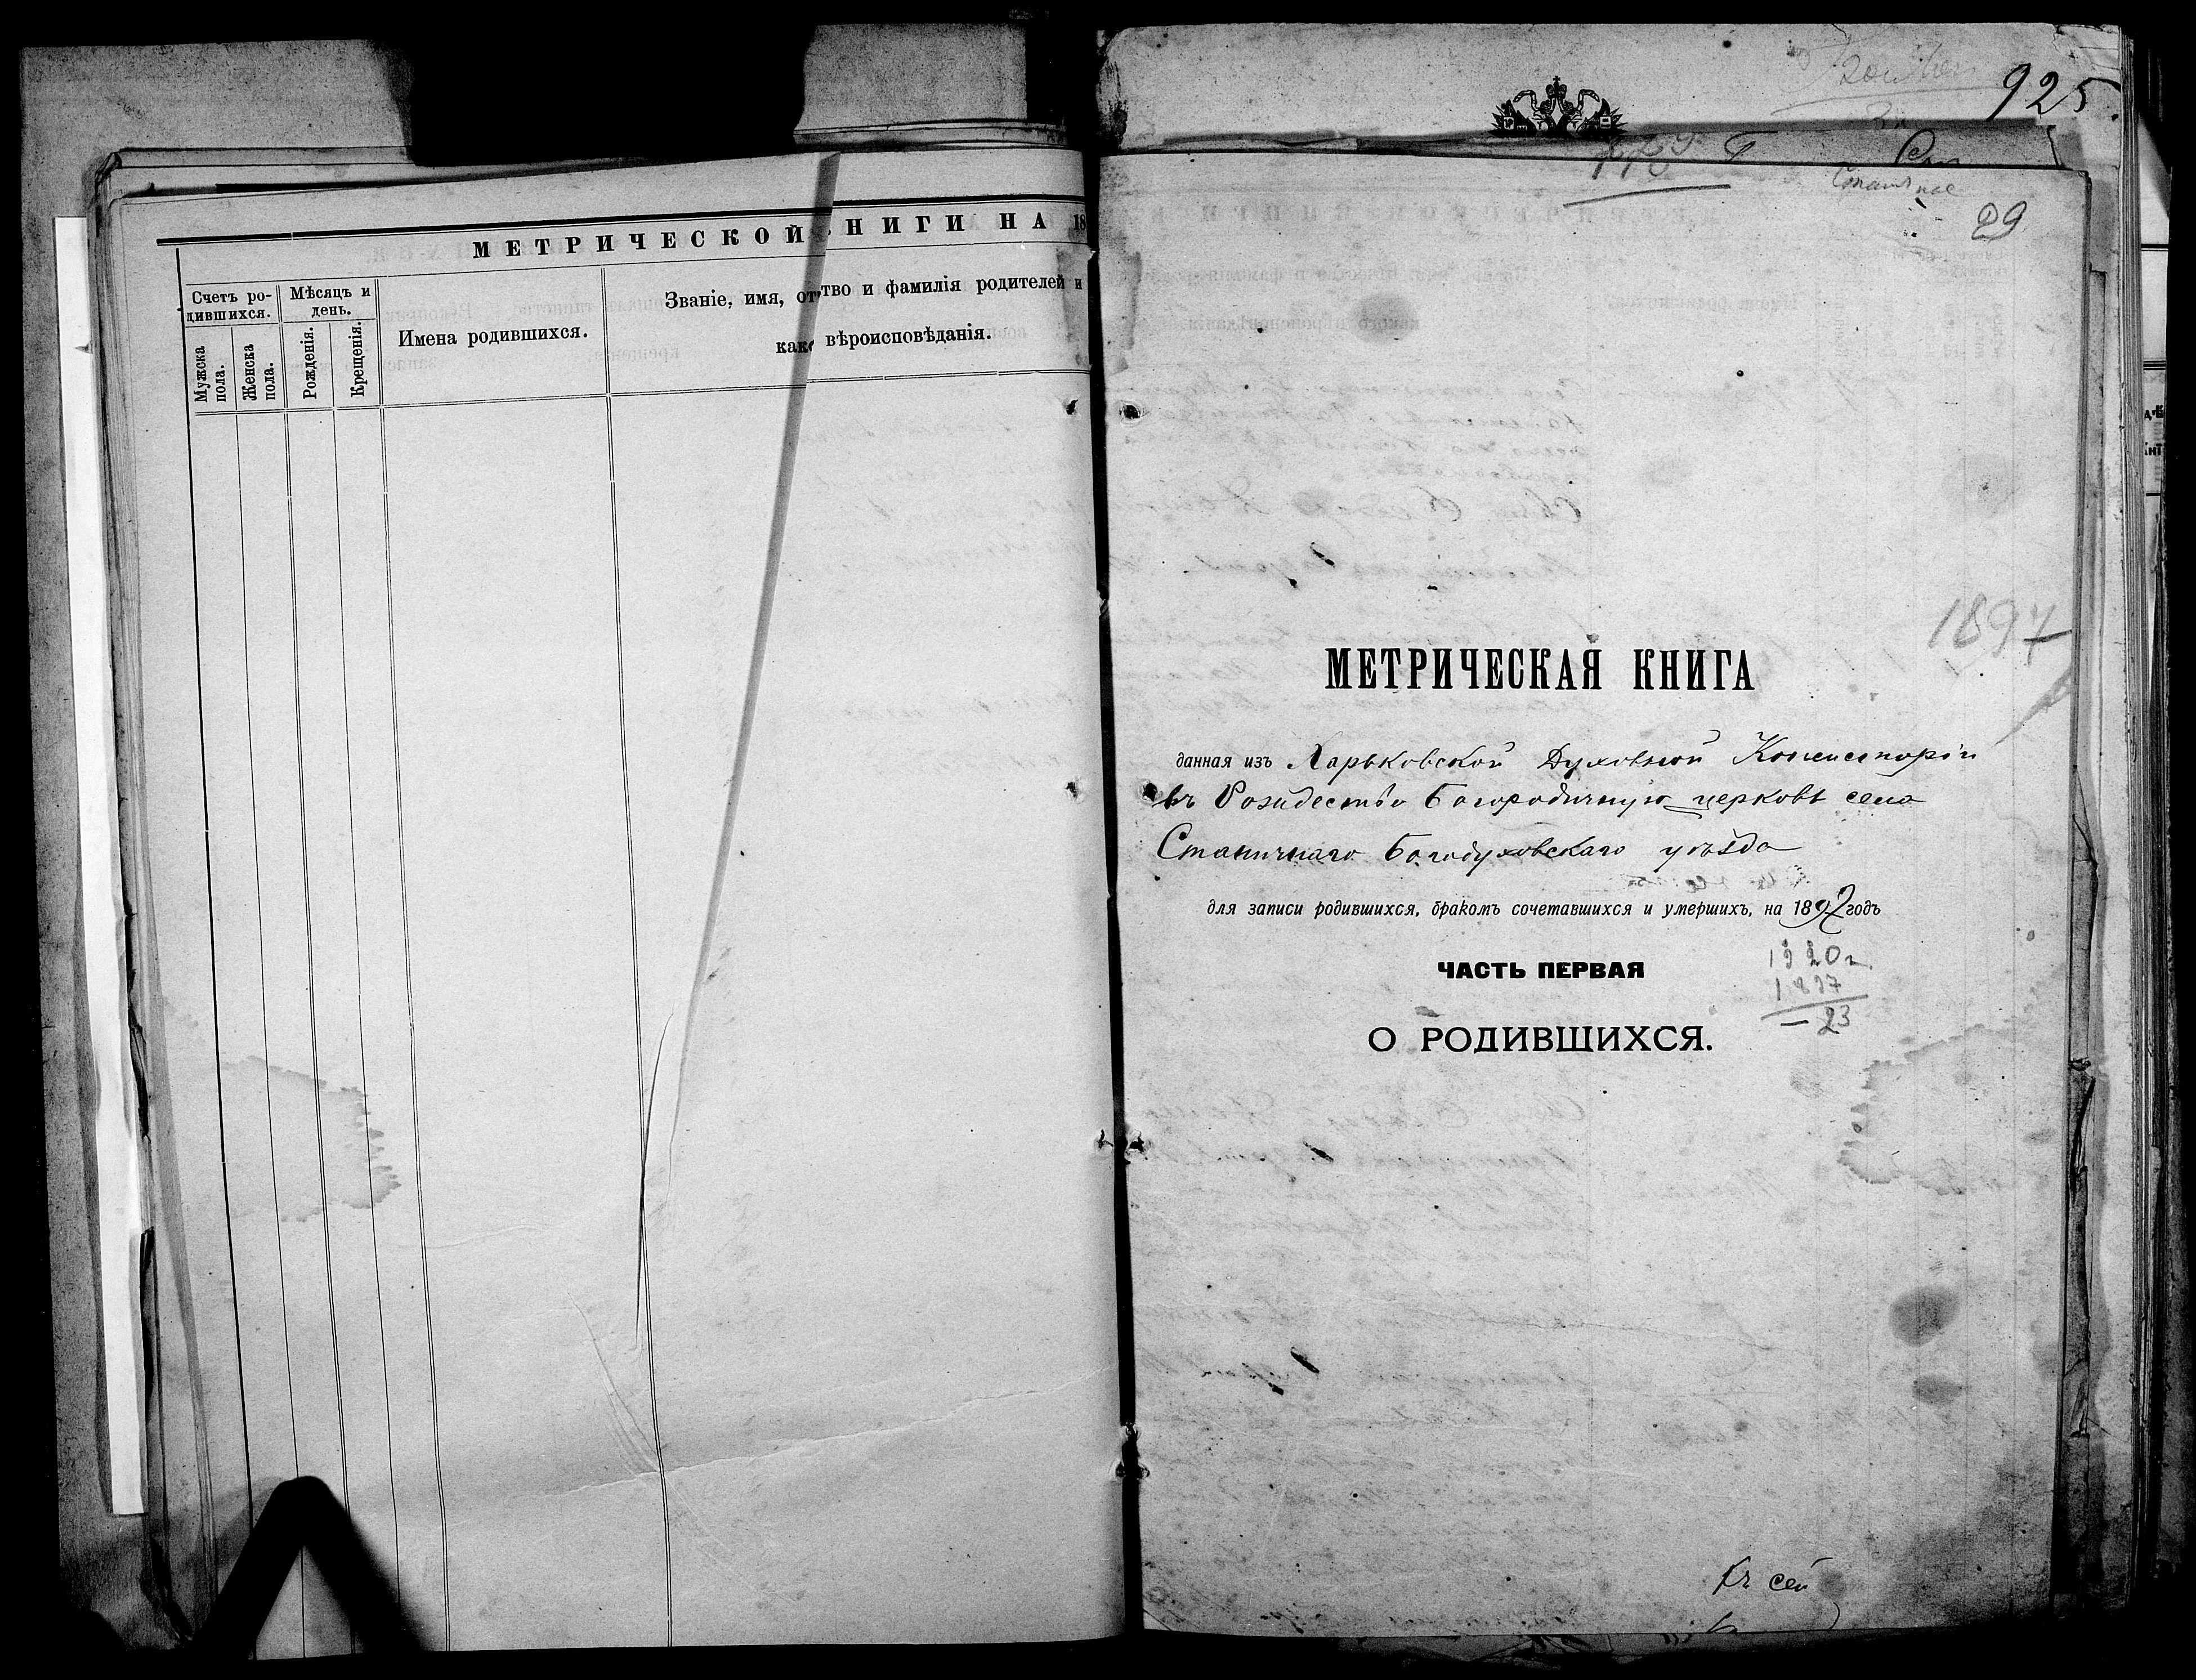 МЕТРИЧЕСКОЙ НИГИ НА 18
Счетъ ро-
дившихся.
Мѣсяцъ и
день.
Мужска
пола.
Женска
пола.
Рожденія.
Крещенія.
Имена родившихся.
Званіе, имя, от тво и фамилія родителей и
как вѣроисповѣданія.
925
Станичное
29
1897
МЕТРИЧЕСКАЯ КНИГА
данная изъ Харьковской Духовной Консисторіи
въ Рождество Богородичную церковь села
Станичнаго Богодуховскаго уѣзда
для записи родившихся, бракомъ сочетавшихся и умершихъ, на 1897 годъ
ЧАСТЬ ПЕРВАЯ
1920г
1897
— 23
О РОДИВШИХСЯ.
Къ сей